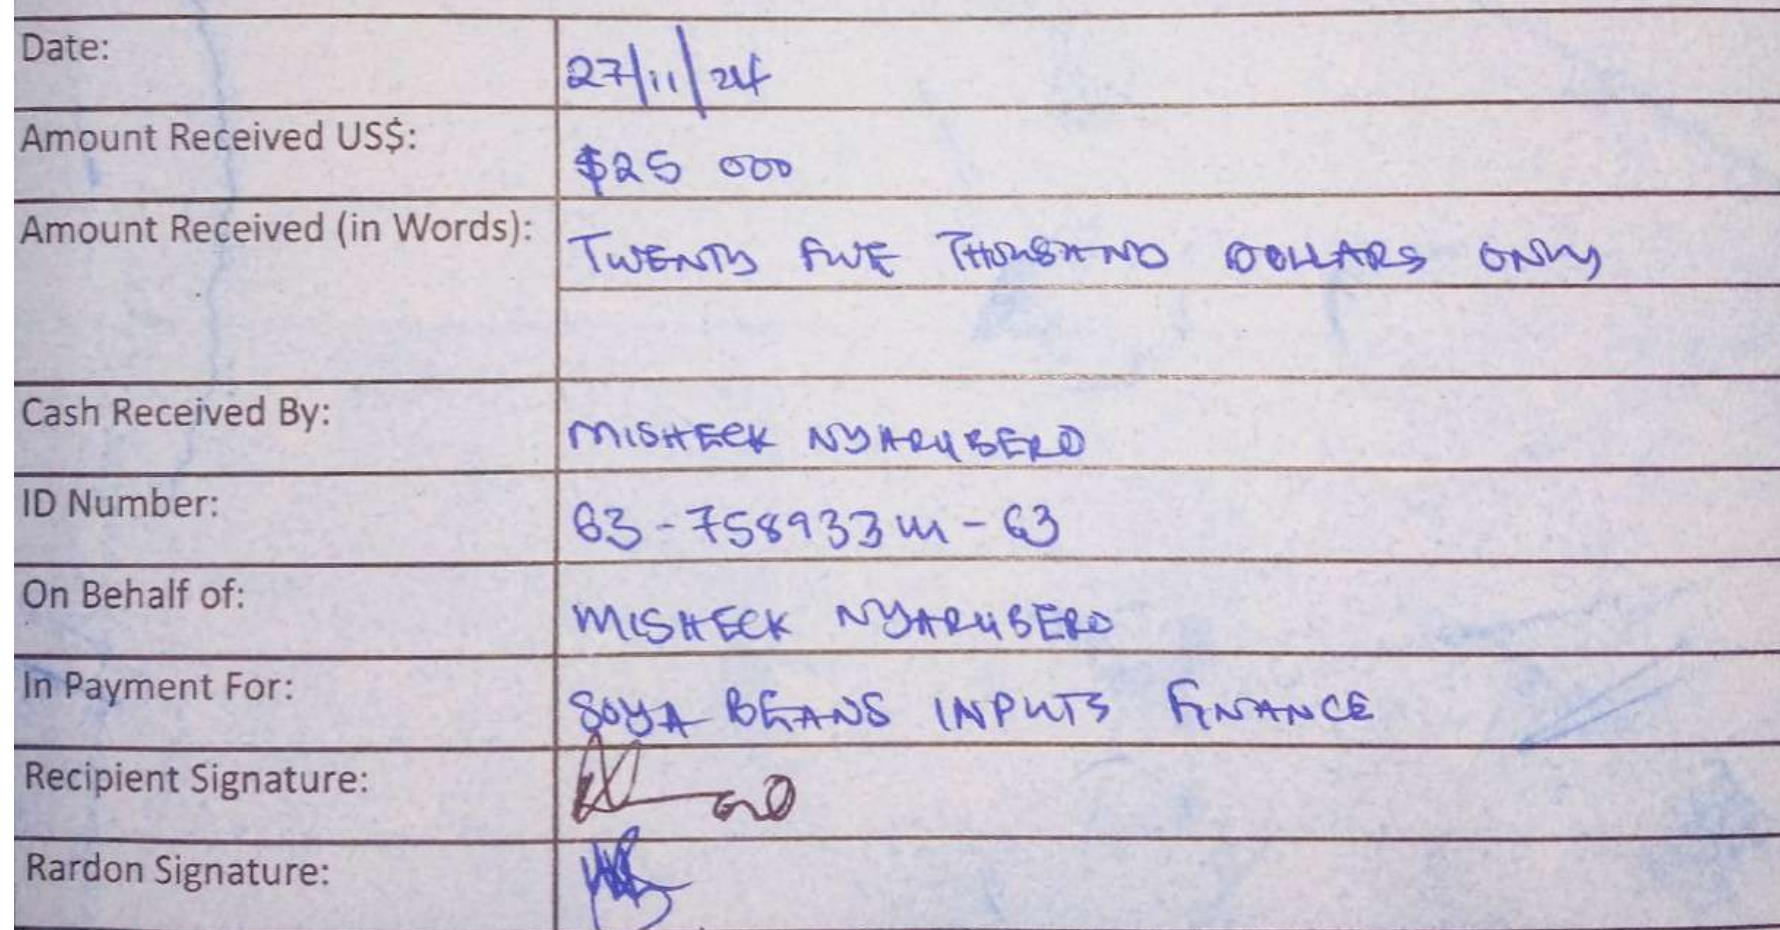 Date: 27/11/24
Amount Received US$: $25 000
Amount Received (in Words): TWENTY FIVE THOUSAND DOLLARS ONLY
Cash Received By: MISHECK NYARUBERO
ID Number: 63-758933M-63
On Behalf of: MISHECK NYARUBERO
In Payment For: SOYA BEANS INPUTS FINANCE
Recipient Signature:
Rardon Signature: